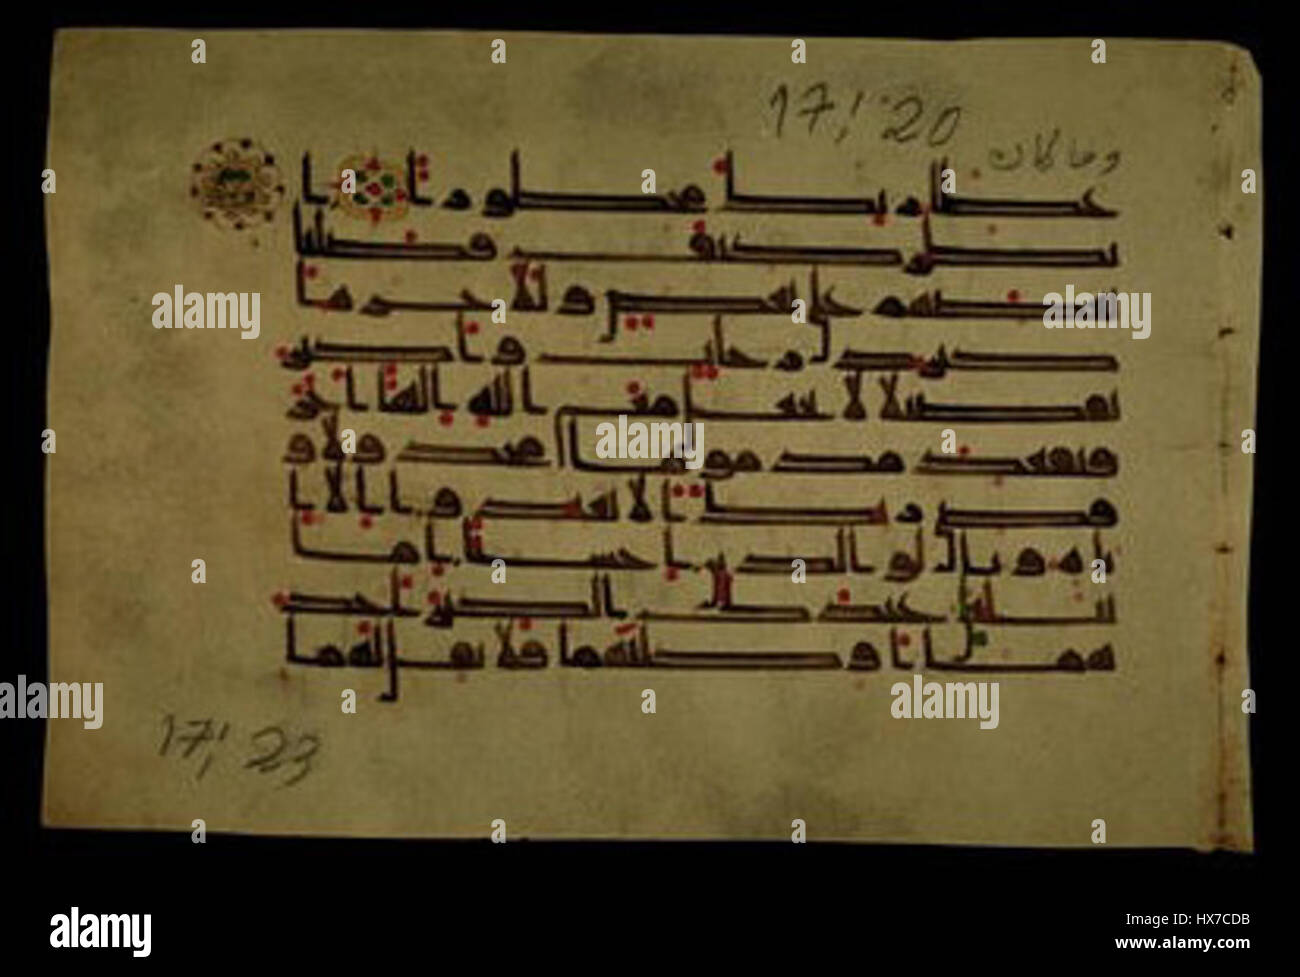 17/20
وما كان
عطا ربك محظورا ا
نظر كيف فضلنا
بعضهم على بعض وللاخرة ا
كبر درجت واكبر
تفضيلا لا تجعل مع الله الها اخر
فتقعد مذموما مخذولا و
قضى ربك الا تعبدوا الا ا
ياه وبالولدين احسنا اما
يبلغن عندك الكبر احد
هما او كلهما فلا تقل لهما
17/23
alamy
Image ID: HX7CDB
www.alamy.com